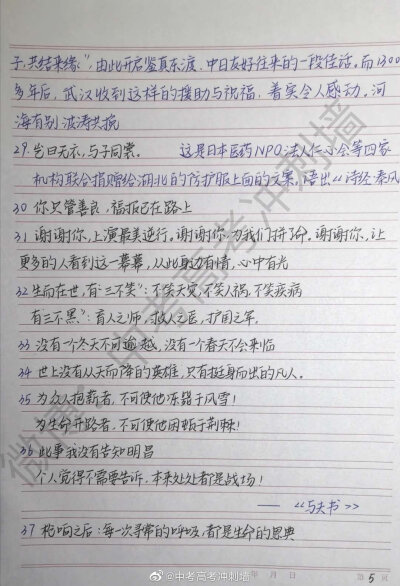 子,共结来缘",由此开启鉴真东渡、中日友好往来的一段佳话。而1300
多年后,武汉收到这样的援助与祝福,着实令人感动。河
海有别 波涛共挽
29. 岂曰无衣,与子同裳。 这是日本医药NPO法人仁心会等四家
机构联合捐赠给湖北的防护服上面的文案,语出《诗经·秦风
30 你只管善良,福报已在路上
31 谢谢你,上演最美逆行,谢谢你,为我们拼了命。谢谢你,让
更多的人看到这一幕幕,从此身边有情,心中有光
32 生而在世,有"三不笑":不笑天灾,不笑人祸,不笑疾病
有三不黑":育人之师,救人之医,护国之军。
33 没有一个冬天不可逾越,没有一个春天不会来临
34 世上没有从天而降的英雄,只有挺身而出的凡人。
35 为众人抱薪者,不可使他冻毙于风雪!
为生命开路者,不可使他困顿于荆棘!
36 此事我没有告知明昌
个人觉得不需要告诉,本来处处都是战场!
——《与夫书》
37 枪响之后:每一次寻常的呼吸,都是生命的恩典
年 月 日 第5页
微博:中考高考冲刺墙
@中考高考冲刺墙